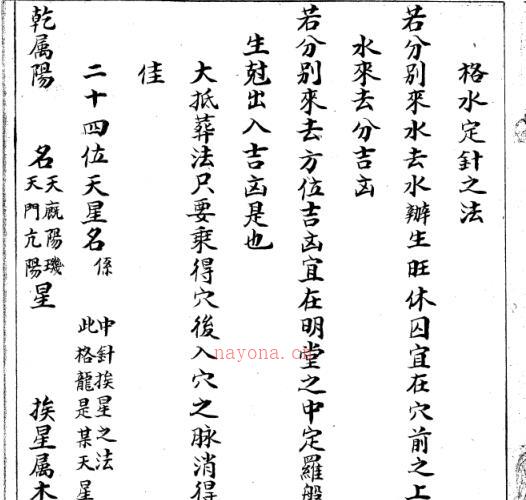 格水定針之法
若分別來水去水辦生旺休囚宜在穴前之上
水來去分吉凶
若分別來去方位吉凶宜在明堂之中定羅盤
生尅出入吉凶是也
大抵葬法只要乘得穴後入穴之脉消得
佳
二十四位天星名係 中針挨星之法 此格龍是某天星
乾属陽 名天廐陽璣 天門亢陽星 挨星属木
nayona.cn